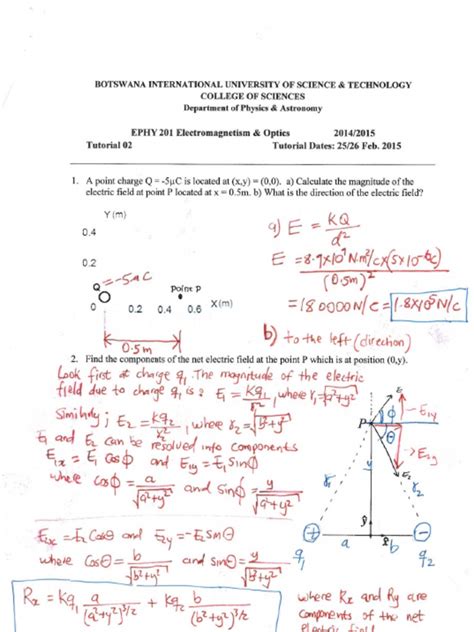 BOTSWANA INTERNATIONAL UNIVERSITY OF SCIENCE & TECHNOLOGY
COLLEGE OF SCIENCES
Department of Physics & Astronomy
EPHY 201 Electromagnetism & Optics 2014/2015
Tutorial 02 Tutorial Dates: 25/26 Feb. 2015
1. A point charge Q = -5μC is located at (x,y) = (0,0). a) Calculate the magnitude of the
electric field at point P located at x = 0.5m. b) What is the direction of the electric field?
Y (m)
0.4
0.2
Q = -5μC
Point P
0 0.2 0.4 0.6 X(m)
0.5m
a) E = KQ/d²
E = 8.9x10⁹ N.m²/C x (5x10⁻⁶C)/(0.5m)²
= 180000 N/C = 1.8x10⁵ N/C
b) to the left (direction)
2. Find the components of the net electric field at the point P which is at position (0,y).
Look first at charge q₁. The magnitude of the electric
field due to charge q₁ is: E₁ = Kq₁/r₁², where r₁ = √(a²+y²)
Similarly; E₂ = Kq₂/r₂², where r₂ = √(b²+y²)
E₁ and E₂ can be resolved into components
E₁ₓ = E₁ Cosϕ and E₁y = E₁ Sinϕ
where Cosϕ = a/√(a²+y²) and Sinϕ = y/√(a²+y²)
E₂ₓ = E₂ Cosθ and E₂y = -E₂ Sinθ
where Cosθ = b/√(b²+y²) and Sinθ = y/√(b²+y²)
Rₓ = Kq₁ a/(a²+y²)^3/2 + Kq₂ b/(b²+y²)^3/2
E₁
ϕ
E₁y
P
θ
E₂y
E₂
r₁
y
r₂
+
-
q₁
a
b
q₂
where Rₓ and Ry are
components of the net
Electric field